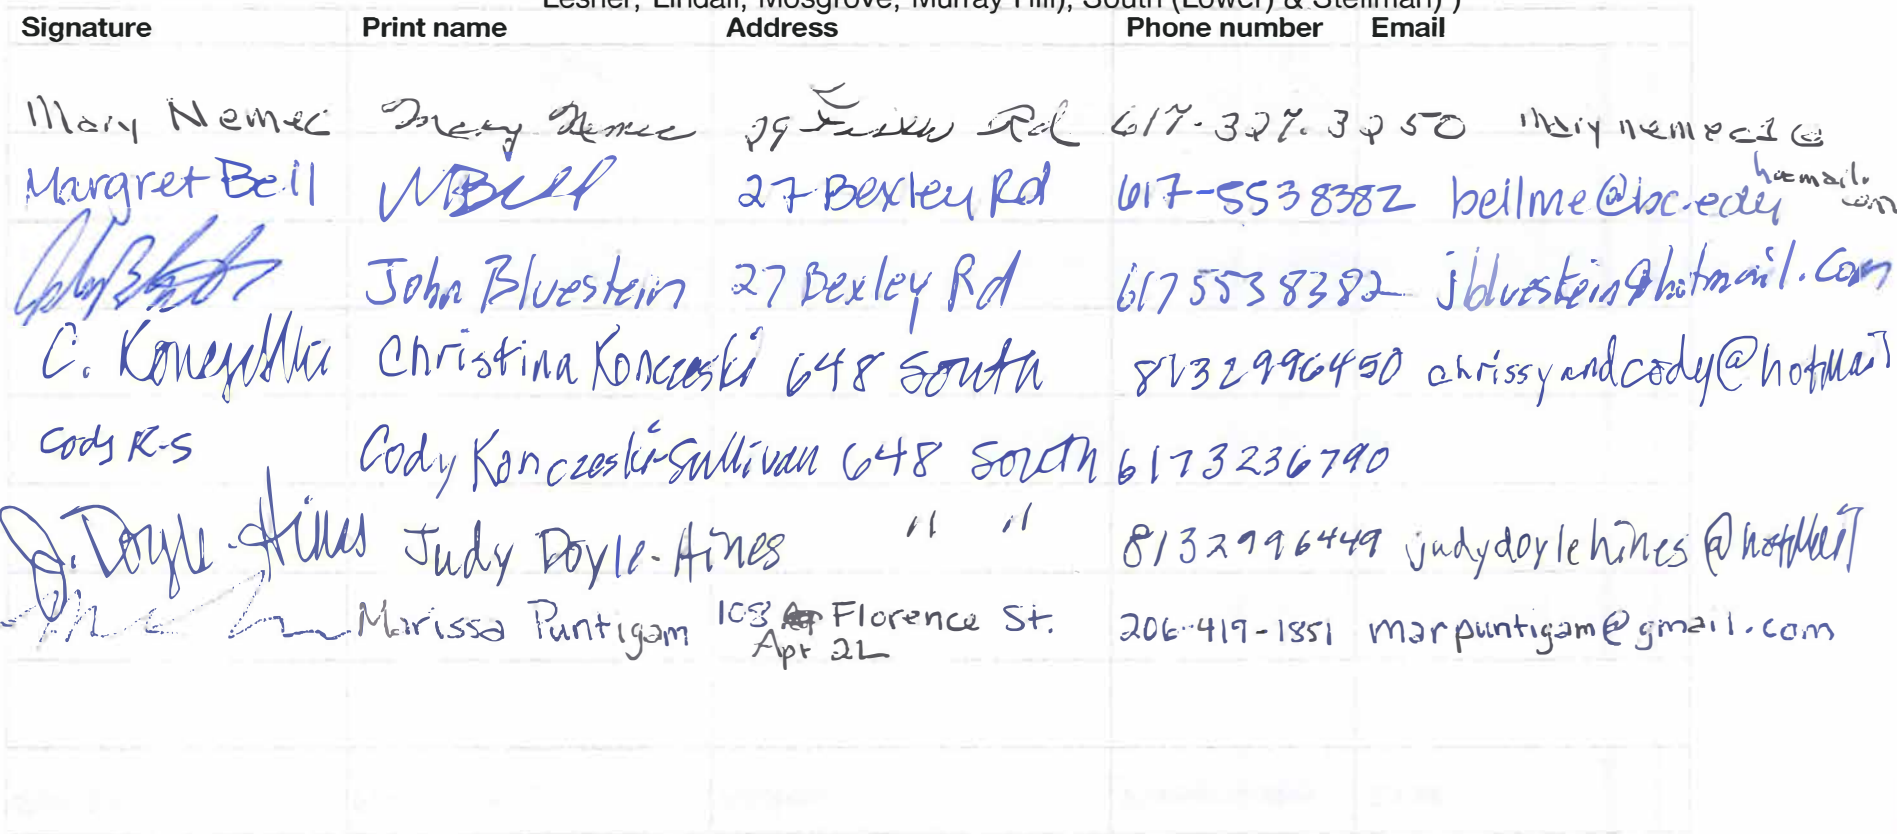 Lesher, Lindall, Mosgrove, Murray Hill), South (Lower) & Stellman) )
Signature Print name Address Phone number Email
Mary Nemec Mary Nemec 29 Rd 617-327-3250 marynemec1@
hotmail.com
Margret Bell MBell 27 Bexley Rd 617-5538382 bellme@bc.edu
John Bluestein 27 Bexley Rd 6175538382 jbluestein@hotmail.com
C. Konczeski Christina Konczeski 648 South 8132996450 chrissyandcody@hotmail
Cody K-S Cody Konczeski-Sullivan 648 South 6173236790
J. Doyle-Hines Judy Doyle-Hines " " 8132996449 judydoylehines@hotmail
Marissa Puntigam 108 Florence St. 206-419-1851 marpuntigam@gmail.com
Apt 2L